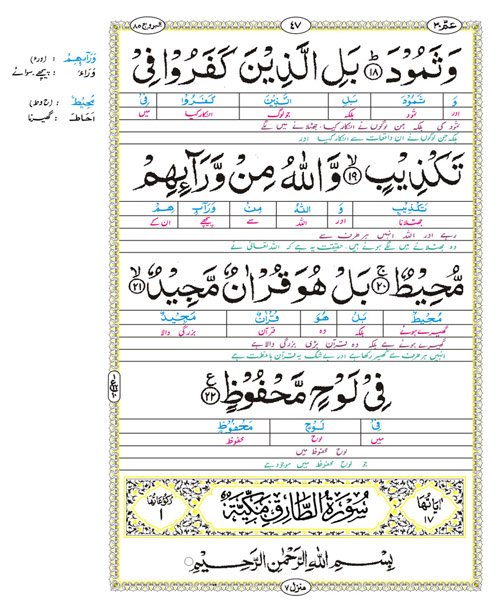 البروج ٨٥
٤٧
عمّ ٣٠
وَثَمُوْدَ ﴿١٨﴾ بَلِ الَّذِيْنَ كَفَرُوْا فِيْ
وَ ثَمُوْدَ بَلِ الَّذِيْنَ كَفَرُوْا فِيْ
اور ثمود بلکہ جو لوگ انکار کیا میں
ثمود کی بلکہ جن لوگوں نے انکار کیا، جھٹلانے میں لگے
بلکہ جن لوگوں نے ان واقعات سے انکار کیا اور
تَكْذِيْبٍ ﴿١٩﴾ وَّاللّٰهُ مِنْ وَّرَآءِهِمْ
تَكْذِيْبٍ وَ اللّٰهُ مِنْ وَرَآءِ هِمْ
جھٹلانا اور اللہ سے پیچھے ان کے
رہے اور اللہ انہیں ہر طرف سے
وہ جھٹلانے میں لگے ہوئے ہیں۔ حقیقت یہ ہے کہ اللہ تعالیٰ نے
مُّحِيْطٌ ﴿٢٠﴾ بَلْ هُوَ قُرْاٰنٌ مَّجِيْدٌ ﴿٢١﴾
مُحِيْطٌ بَلْ هُوَ قُرْاٰنٌ مَجِيْدٌ
گھیرے ہوئے بلکہ وہ قرآن بزرگی والا
گھیرے ہوئے ہے بلکہ وہ قرآن بڑی بزرگی والا ہے
انہیں ہر طرف سے گھیر رکھا ہے اور بے شک یہ قرآن باعظمت ہے
فِيْ لَوْحٍ مَّحْفُوْظٍ ﴿٢٢﴾
فِيْ لَوْحٍ مَحْفُوْظٍ
میں لوح محفوظ
لوح محفوظ میں
جو لوح محفوظ میں موجود ہے
اٰيَاتُهَا ١٧
سُوْرَةُ الطَّارِقِ مَكِّيَّةٌ
رُكُوْعَاتُهَا ١
بِسْمِ اللّٰهِ الرَّحْمٰنِ الرَّحِيْمِ
منزل ٧
وَرَآءِهِمْ : (ورء)
وَرَاءَ : پیچھے، سوائے
مُحِيْطٌ : (ح و ط)
اَحَاطَہ : گھیرنا